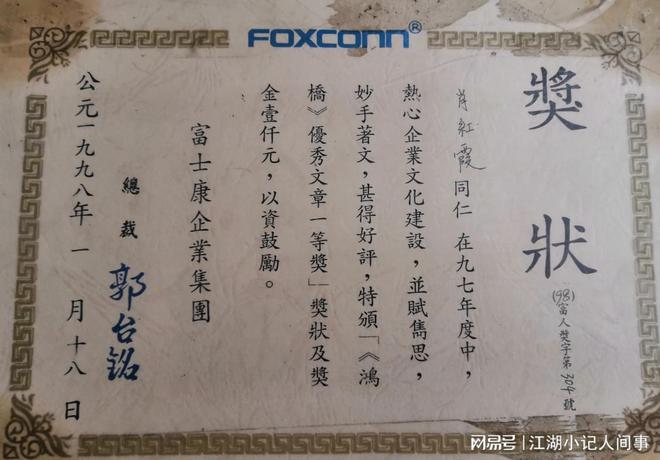 FOXCONN®
獎狀
(98)富人獎字第304號
肖紅霞同仁在九七年度中，
熱心企業文化建設，並賦雋思，
妙手著文，甚得好評，特頒「《鴻
橋》優秀文章一等獎」獎狀及獎
金壹仟元，以資鼓勵。
富士康企業集團
總裁 郭台銘
公元一九九八年一月十八日
网易号 | 江湖小记人间事